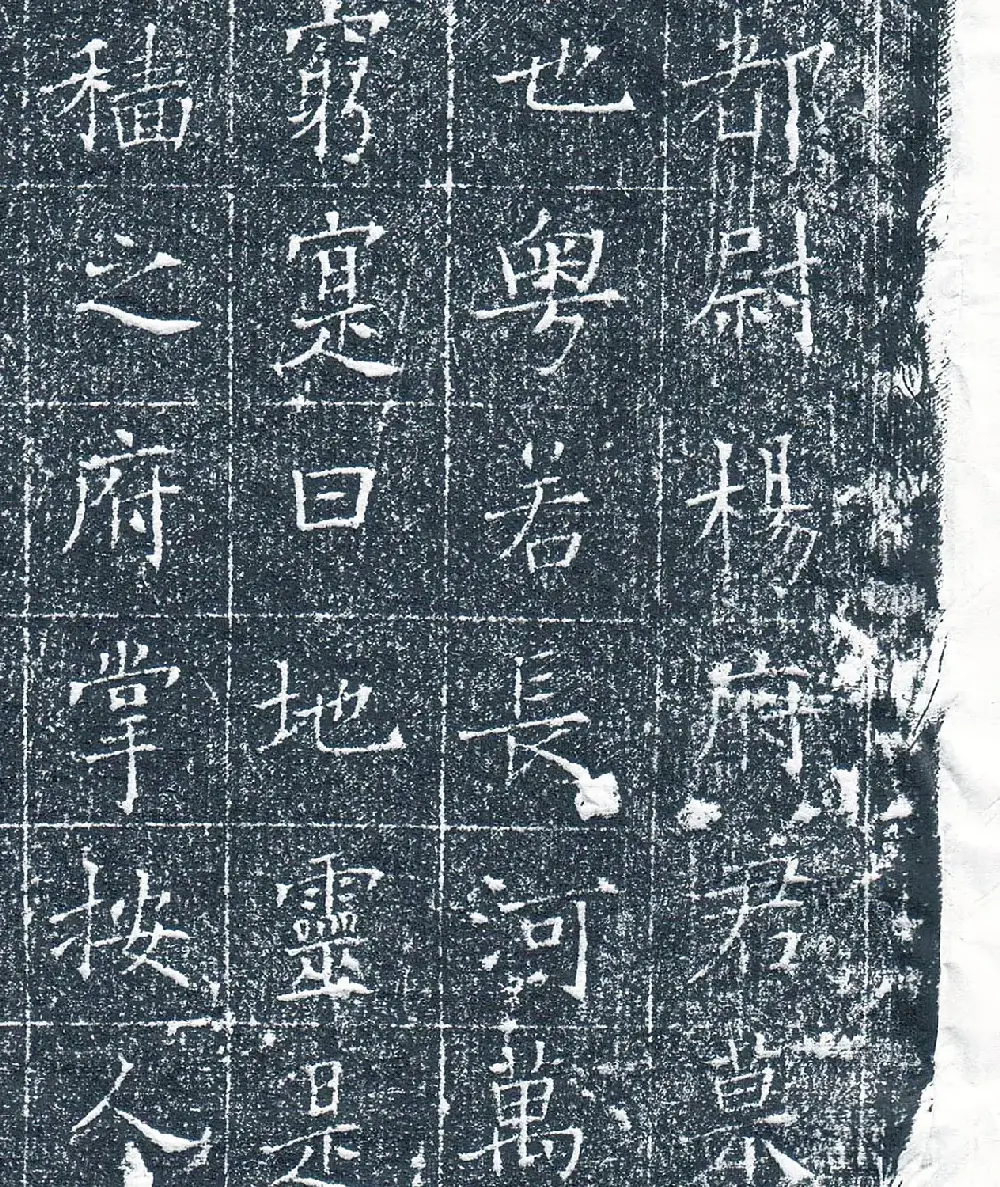 都尉楊府君墓
也粵若長河萬
窮寔曰地靈是
穡之府掌按人